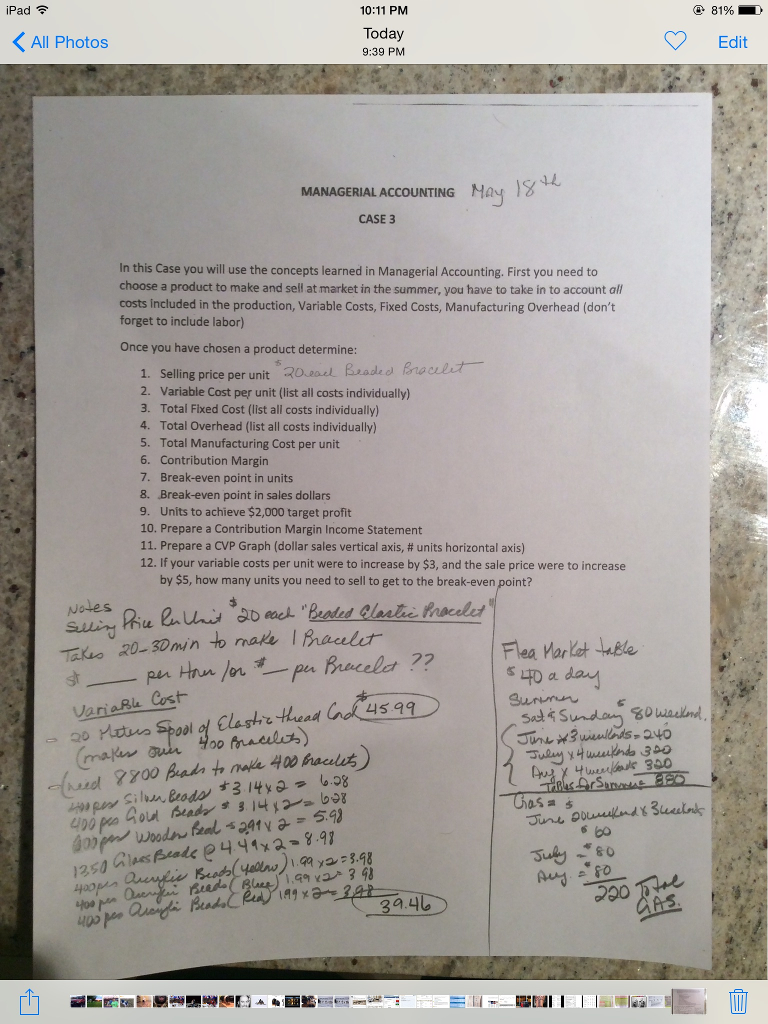 iPad
10:11 PM
81%
All Photos
Today
9:39 PM
Edit
MANAGERIAL ACCOUNTING May 18th
CASE 3
In this Case you will use the concepts learned in Managerial Accounting. First you need to
choose a product to make and sell at market in the summer, you have to take in to account all
costs included in the production, Variable Costs, Fixed Costs, Manufacturing Overhead (don't
forget to include labor)
Once you have chosen a product determine:
1. Selling price per unit $20 each Beaded Bracelet
2. Variable Cost per unit (list all costs individually)
3. Total Fixed Cost (list all costs individually)
4. Total Overhead (list all costs individually)
5. Total Manufacturing Cost per unit
6. Contribution Margin
7. Break-even point in units
8. Break-even point in sales dollars
9. Units to achieve $2,000 target profit
10. Prepare a Contribution Margin Income Statement
11. Prepare a CVP Graph (dollar sales vertical axis, # units horizontal axis)
12. If your variable costs per unit were to increase by $3, and the sale price were to increase
by $5, how many units you need to sell to get to the break-even point?
Notes
Selling Price Per Unit $20 each "Beaded Elastic Bracelet"
Takes 20-30 min to make 1 Bracelet
$ ___ per Hour /or $ __ per Bracelet ??
Variable Cost
- 20 Meters Spool of Elastic thread Cord $45.99
(makes over 400 Bracelets)
- (need 8800 Beads to make 400 Bracelets)
400 pcs Silver Beads $3.14 x 2 = 6.28
400 pcs Gold Beads $3.14 x 2 = 6.28
pcs Wooden Bead $2.99 x 2 = 5.98
1350 Glass Beads @ 4.49 x 2 = 8.98
400 pcs Acrylic Beads (Yellow) 1.99 x 2 = 3.98
400 pcs Acrylic Beads (Blue) 1.99 x 2 = 3.98
400 pcs Acrylic Beads (Red) 1.99 x 2 = 3.98
39.46
Flea Market table
$40 a day
Summer
Sat & Sunday $80 weekend.
June x 3 weekends = 240
July x 4 weekends 320
Aug x 4 weekends 320
Tables for Summer = 880
Gas = $
June 20 weekend x 3 weekends
$60
July = $80
Aug. = $80
220 Total
GAS.